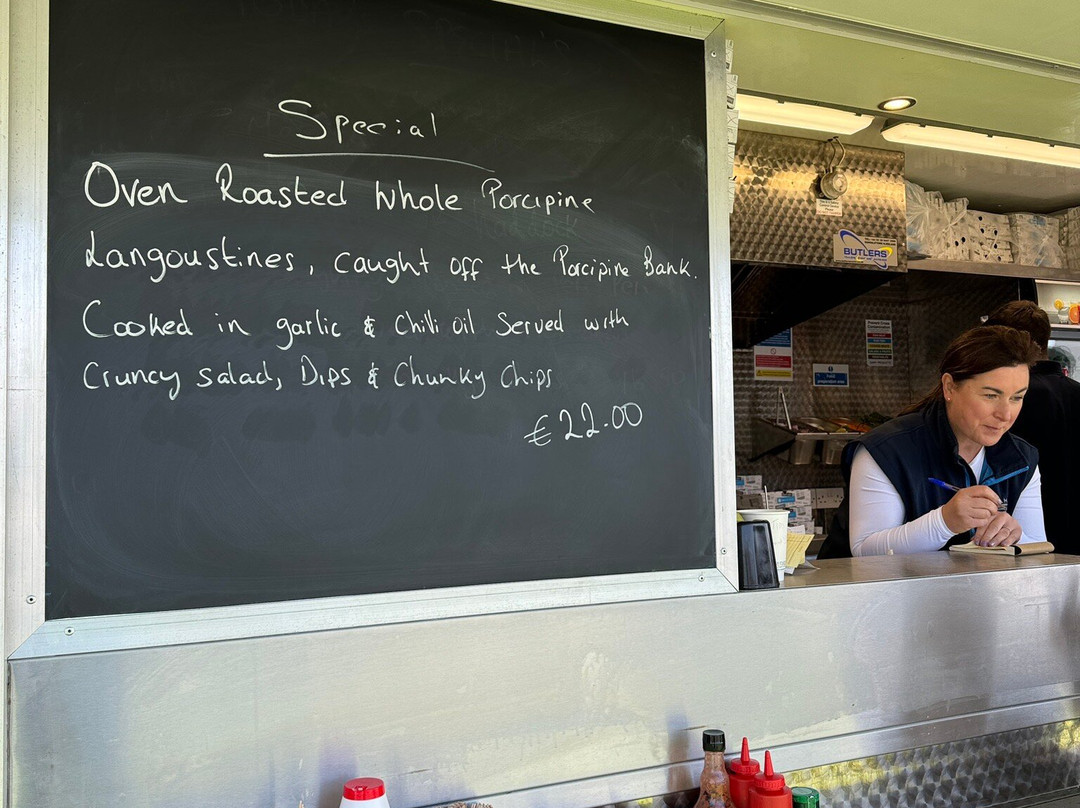 Special
Oven Roasted Whole Porcipine
Langoustines, caught off the Porcipine Bank.
Cooked in garlic & Chilli oil Served with
Cruncy salad, Dips & Chunky Chips
€22.00
BUTLERS